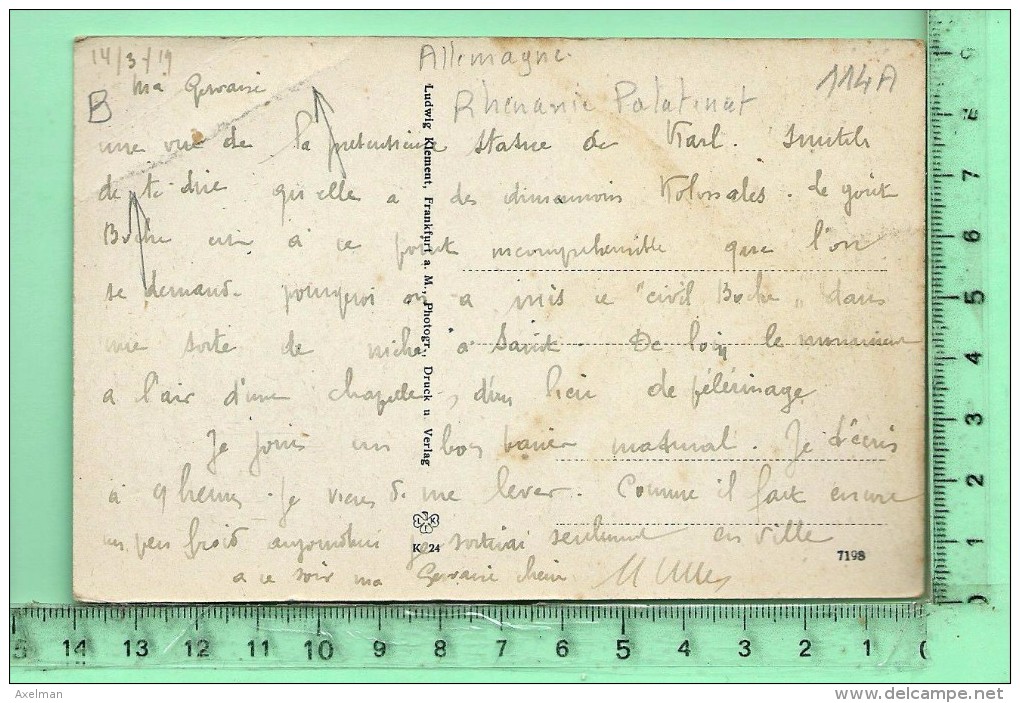 14/3/19
Allemagne.
Ma Gervaise
114A
B
Rhénanie Palatinat
une vue de la prétentieuse statue de Karl. Inutile
de te dire qu'elle a des dimensions Kolossales. Le goût
Boche est à ce point incompréhensible que l'on
se demande pourquoi on a mis ce "civil Boche" dans
une sorte de niche à Saint. De loin le monument
a l'air d'une chapelle, d'un lieu de pélérinage
Je un bon matinal. Je t'écris
à 9 heures. Je viens de me lever. Comme il fait encore
un peu froid aujourd'hui je sortirai seulement en ville
a ce soir ma Gervaise chérie
Ludwig Klement, Frankfurt a. M., Photogr., Druck u. Verlag
K 24
7198
15 14 13 12 11 10 9 8 7 6 5 4 3 2 1 0
9 8 7 6 5 4 3 2 1 0
Axelman
www.delcampe.net